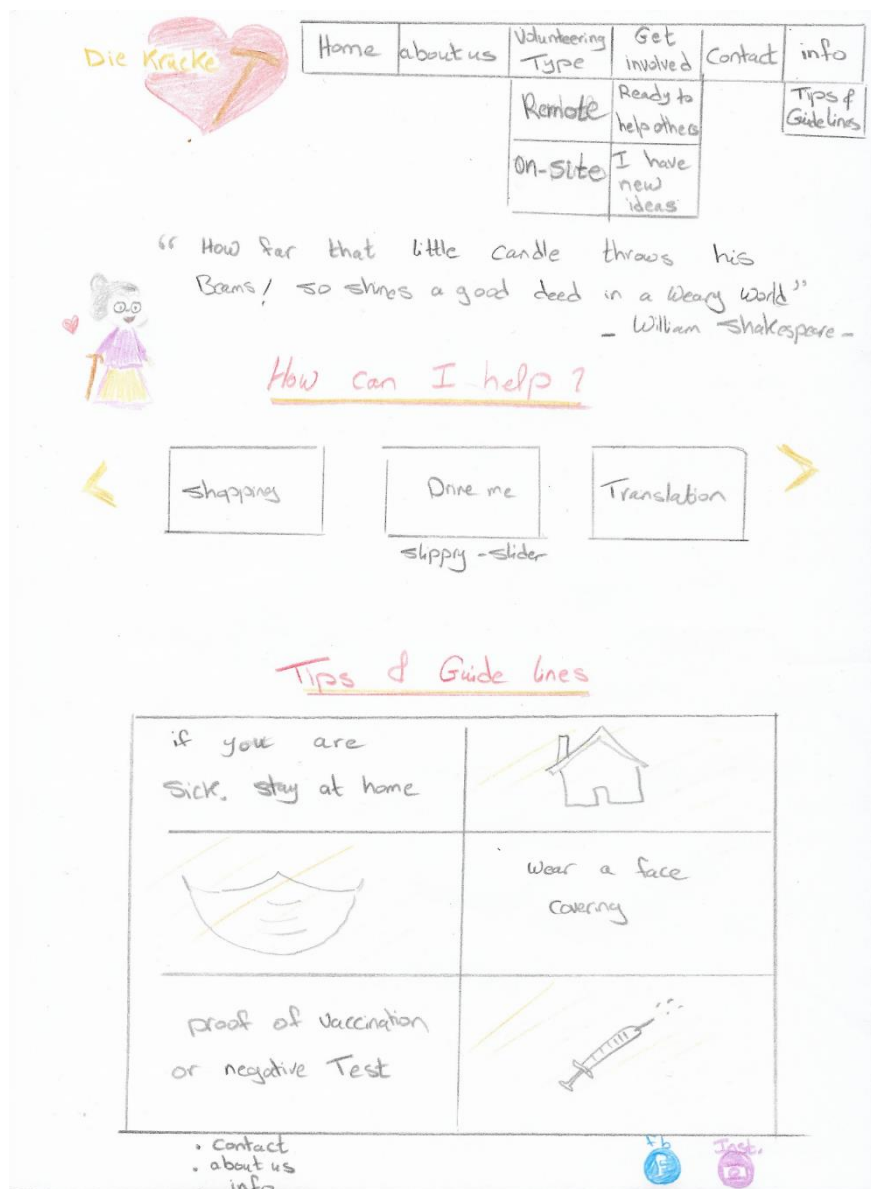 Die Krücke
Home
about us
Volunteering
Type
Get
involved
Contact
info
Remote
Ready to
help others
Tips &
Guidelines
On-site
I have
new
ideas
“ How far that little candle throws his
Beams! so shines a good deed in a weary world”
- William Shakespeare -
How can I help?
shopping
Drive me
Translation
slippry - slider
Tips & Guide lines
if you are
sick. stay at home
wear a face
covering
proof of vaccination
or negative Test
. contact
. about us
info
fb
F
Inst.